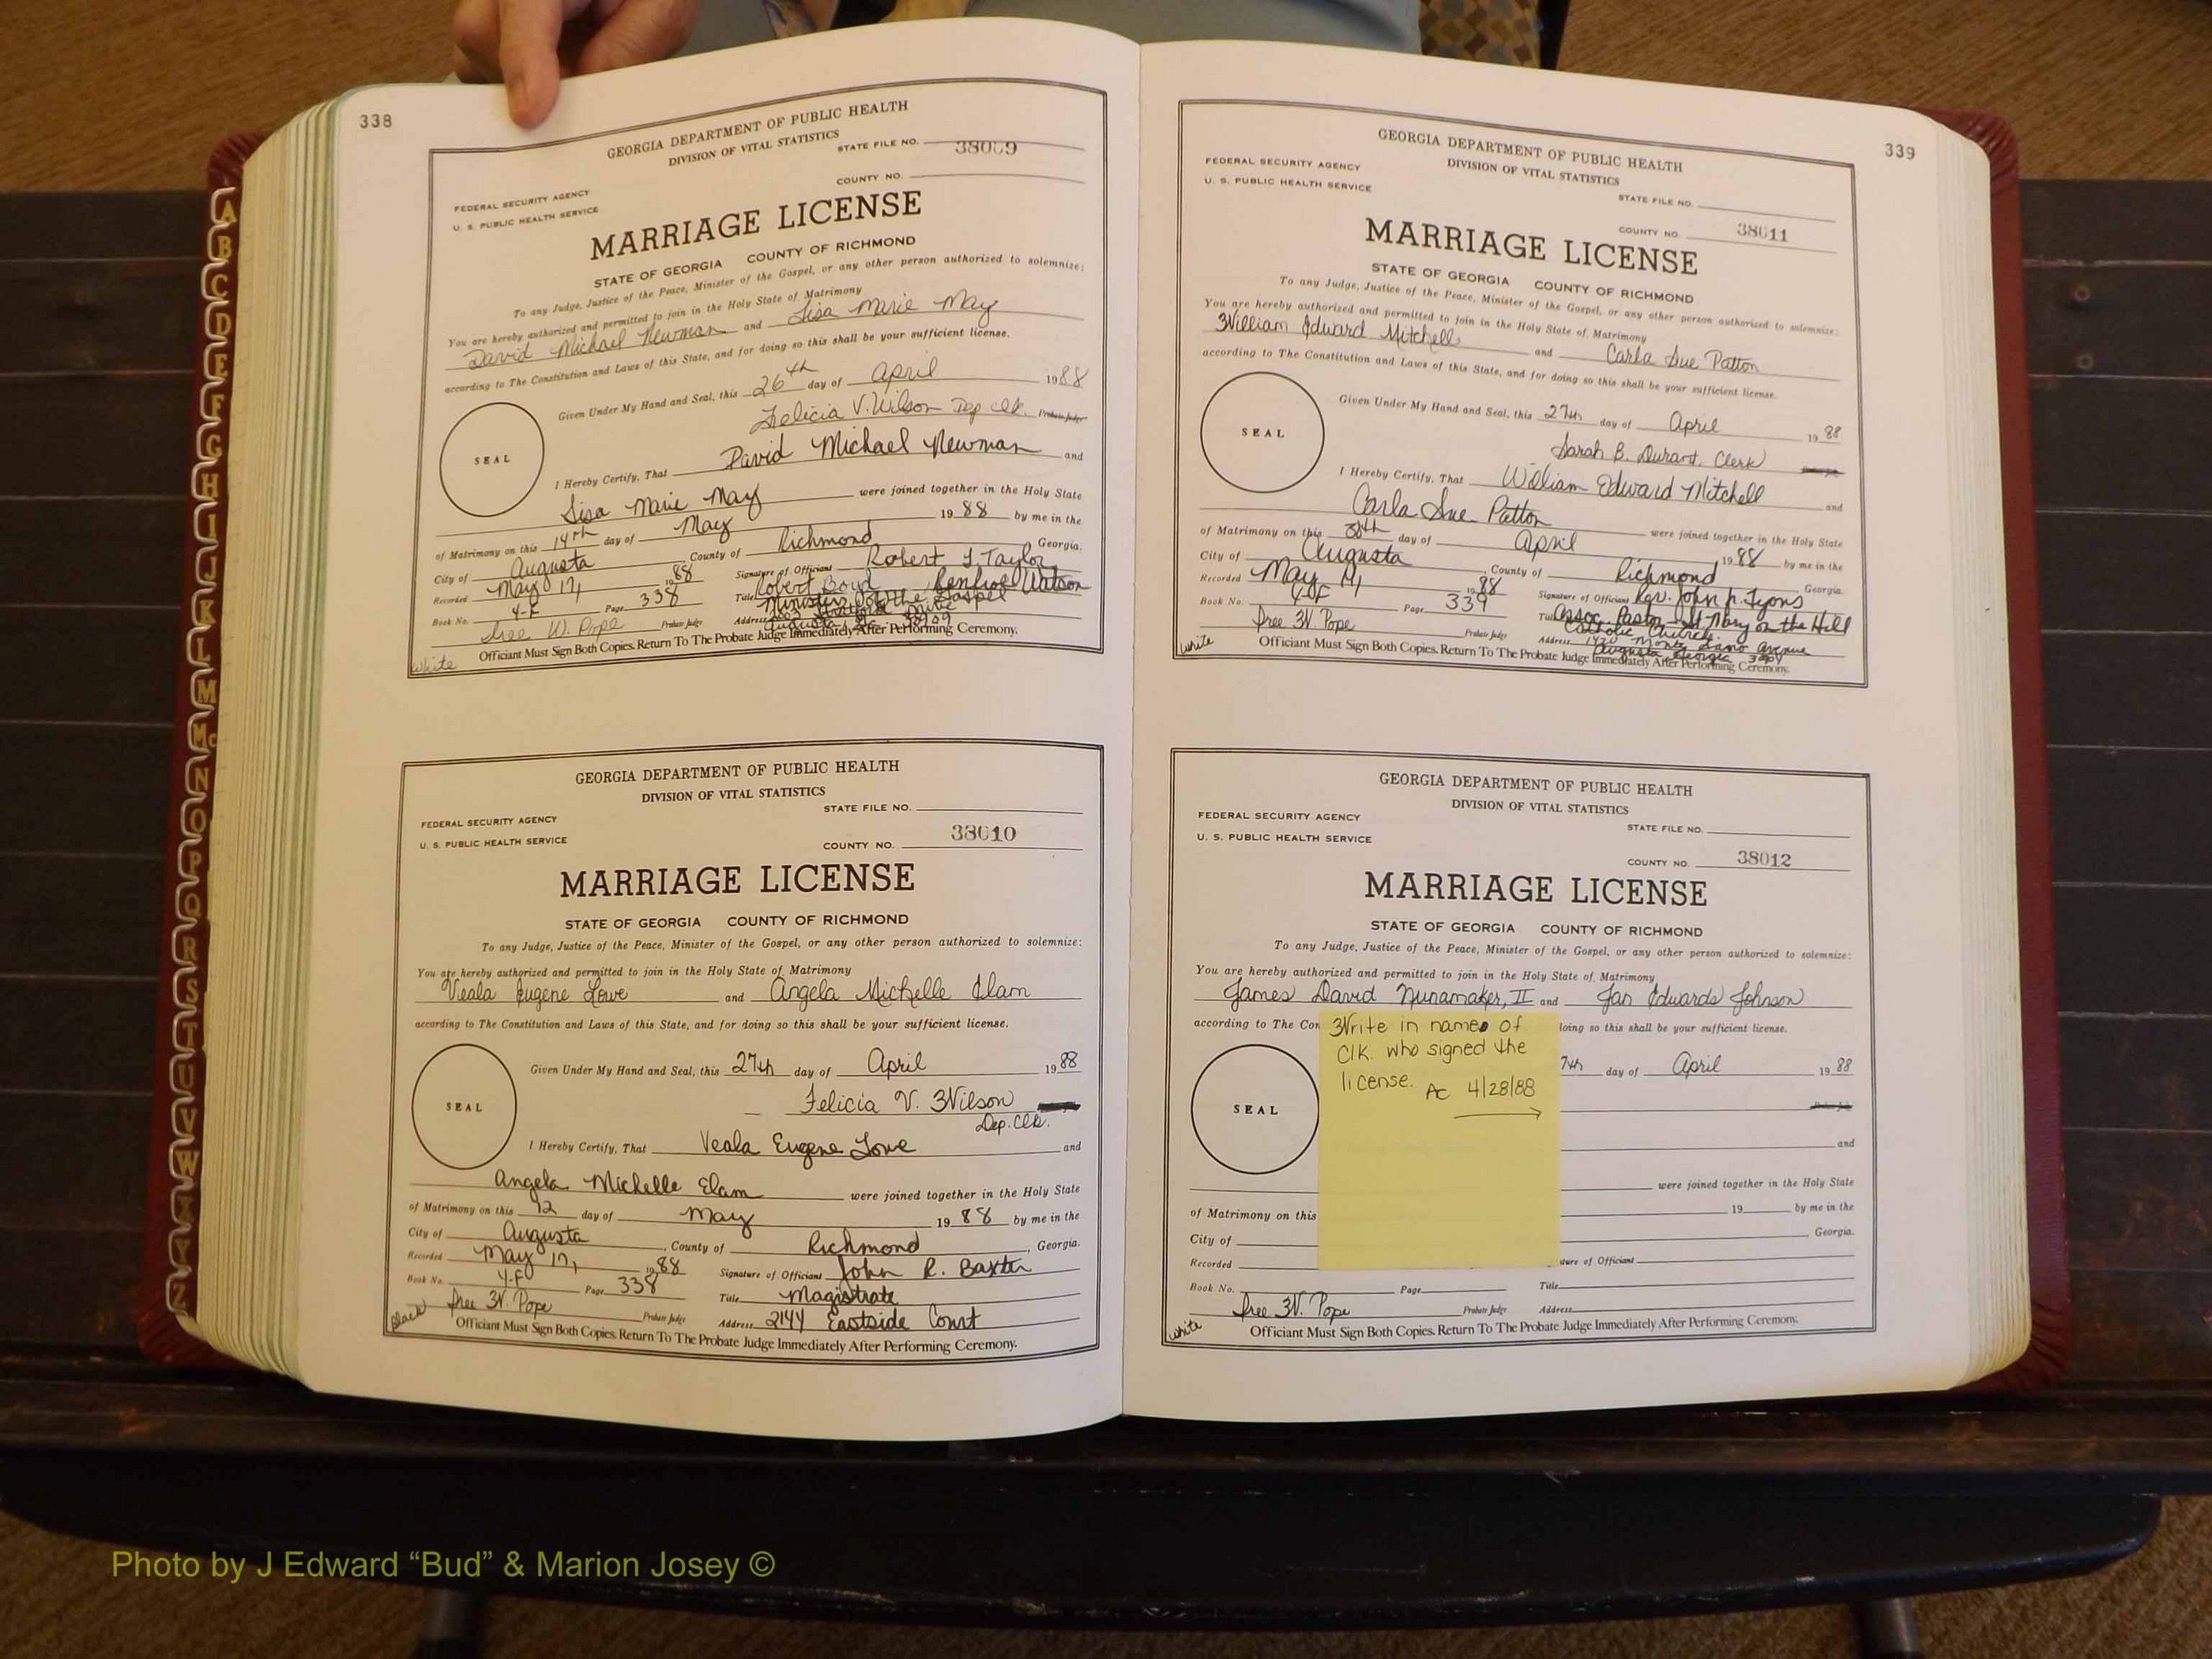 338
GEORGIA DEPARTMENT OF PUBLIC HEALTH
DIVISION OF VITAL STATISTICS
STATE FILE NO. 38009
COUNTY NO.
FEDERAL SECURITY AGENCY
U. S. PUBLIC HEALTH SERVICE
MARRIAGE LICENSE
STATE OF GEORGIA COUNTY OF RICHMOND
To any Judge, Justice of the Peace, Minister of the Gospel, or any other person authorized to solemnize:
You are hereby authorized and permitted to join in the Holy State of Matrimony
David Michael Newman and Lisa Marie May
according to The Constitution and Laws of this State, and for doing so this shall be your sufficient license.
Given Under My Hand and Seal, this 26th day of April 1988
Felicia V. Wilson Dep. Clk. Probate Judge
SEAL
I Hereby Certify, That David Michael Newman and
Lisa Marie May were joined together in the Holy State
of Matrimony on this 14th day of May 1988 by me in the
City of Augusta County of Richmond Georgia.
Recorded May 17, 1988 Signature of Officiant Robert L. Taylor
Robert Boyd Renfroe Watson
Book No. 4-F Page 338 Title Ministers of the Gospel
Free W. Pope Probate Judge Address Drive
Augusta, Ga. 30909
White Officiant Must Sign Both Copies. Return To The Probate Judge Immediately After Performing Ceremony.
GEORGIA DEPARTMENT OF PUBLIC HEALTH
DIVISION OF VITAL STATISTICS
STATE FILE NO.
FEDERAL SECURITY AGENCY
U. S. PUBLIC HEALTH SERVICE
COUNTY NO. 38010
MARRIAGE LICENSE
STATE OF GEORGIA COUNTY OF RICHMOND
To any Judge, Justice of the Peace, Minister of the Gospel, or any other person authorized to solemnize:
You are hereby authorized and permitted to join in the Holy State of Matrimony
Veala Eugene Lowe and Angela Michelle Elam
according to The Constitution and Laws of this State, and for doing so this shall be your sufficient license.
Given Under My Hand and Seal, this 27th day of April 1988
Felicia V. Wilson
Dep. Clk.
SEAL
I Hereby Certify, That Veala Eugene Lowe and
Angela Michelle Elam were joined together in the Holy State
of Matrimony on this 12 day of May 1988 by me in the
City of Augusta, County of Richmond, Georgia.
Recorded May 17, 1988 Signature of Officiant John R. Baxter
Book No. 4-F Page 338 Title Magistrate
Free W. Pope Probate Judge Address 2144 Eastside Court
Black Officiant Must Sign Both Copies. Return To The Probate Judge Immediately After Performing Ceremony.
339
GEORGIA DEPARTMENT OF PUBLIC HEALTH
DIVISION OF VITAL STATISTICS
FEDERAL SECURITY AGENCY
U. S. PUBLIC HEALTH SERVICE
STATE FILE NO.
COUNTY NO. 38011
MARRIAGE LICENSE
STATE OF GEORGIA COUNTY OF RICHMOND
To any Judge, Justice of the Peace, Minister of the Gospel, or any other person authorized to solemnize:
You are hereby authorized and permitted to join in the Holy State of Matrimony
William Edward Mitchell and Carla Sue Patton
according to The Constitution and Laws of this State, and for doing so this shall be your sufficient license.
Given Under My Hand and Seal, this 27th day of April 1988
Sarah B. Durant, Clerk
SEAL
I Hereby Certify, That William Edward Mitchell and
Carla Sue Patton were joined together in the Holy State
of Matrimony on this day of April 1988 by me in the
City of Augusta, County of Richmond Georgia.
Recorded May 17, 1988 Signature of Officiant Rev. John N. Lyons
Book No. 4-F Page 339 Title Assoc. Pastor - St Mary on the Hill
Catholic Church.
Free W. Pope Probate Judge Address 1420 Monte Sano Avenue
Augusta Georgia 30904
White Officiant Must Sign Both Copies. Return To The Probate Judge Immediately After Performing Ceremony.
GEORGIA DEPARTMENT OF PUBLIC HEALTH
DIVISION OF VITAL STATISTICS
FEDERAL SECURITY AGENCY
U. S. PUBLIC HEALTH SERVICE
STATE FILE NO.
COUNTY NO. 38012
MARRIAGE LICENSE
STATE OF GEORGIA COUNTY OF RICHMOND
To any Judge, Justice of the Peace, Minister of the Gospel, or any other person authorized to solemnize:
You are hereby authorized and permitted to join in the Holy State of Matrimony
James David Nunamaker, II and Jan Edwards Johnson
according to The Con loing so this shall be your sufficient license.
Write in name of
Clk. who signed the
license. AC 4/28/88
7th day of April 1988
SEAL
and
were joined together in the Holy State
of Matrimony on this 19 by me in the
City of Georgia.
Recorded ture of Officiant
Book No. Page Title
Free W. Pope Probate Judge Address
White Officiant Must Sign Both Copies. Return To The Probate Judge Immediately After Performing Ceremony.
A
B
C
D
E
F
G
H
I
J
K
L
M
Mc
N
O
P
Q
R
S
T
U
V
W
X
Y
Z
Photo by J Edward “Bud” & Marion Josey ©